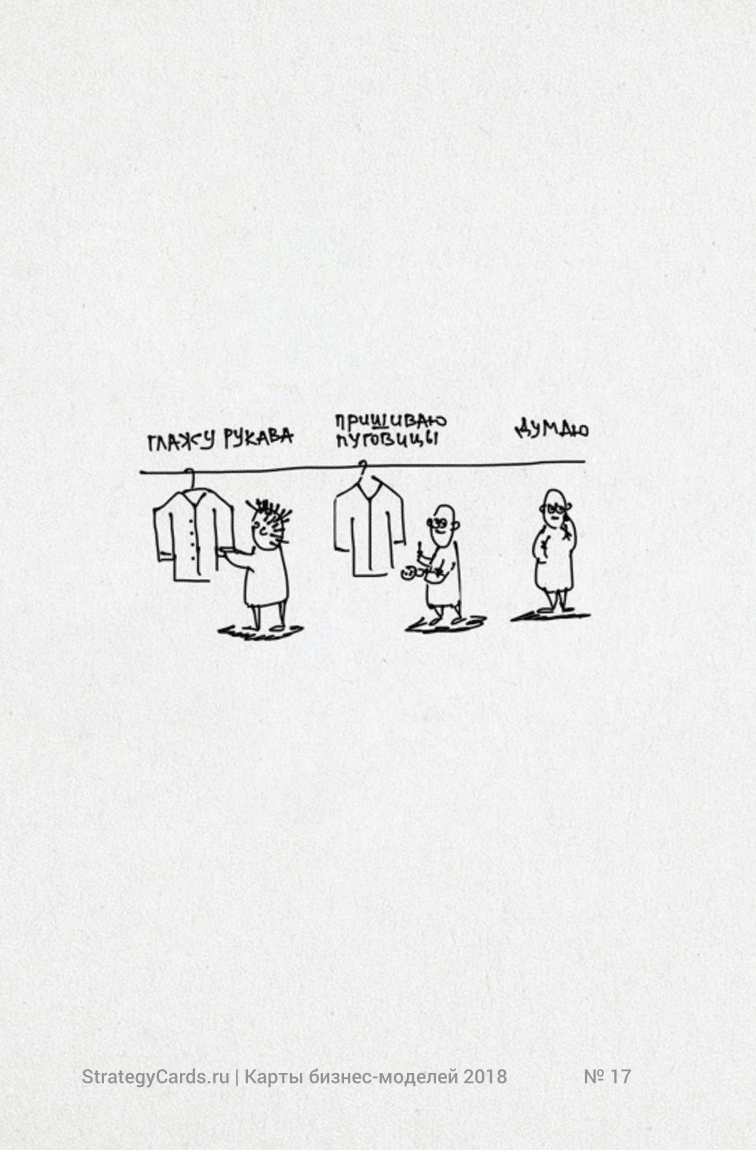 ГЛАЖУ РУКАВА
ПРИШИВАЮ
ПУГОВИЦЫ
ДУМАЮ
StrategyCards.ru | Карты бизнес-моделей 2018 № 17